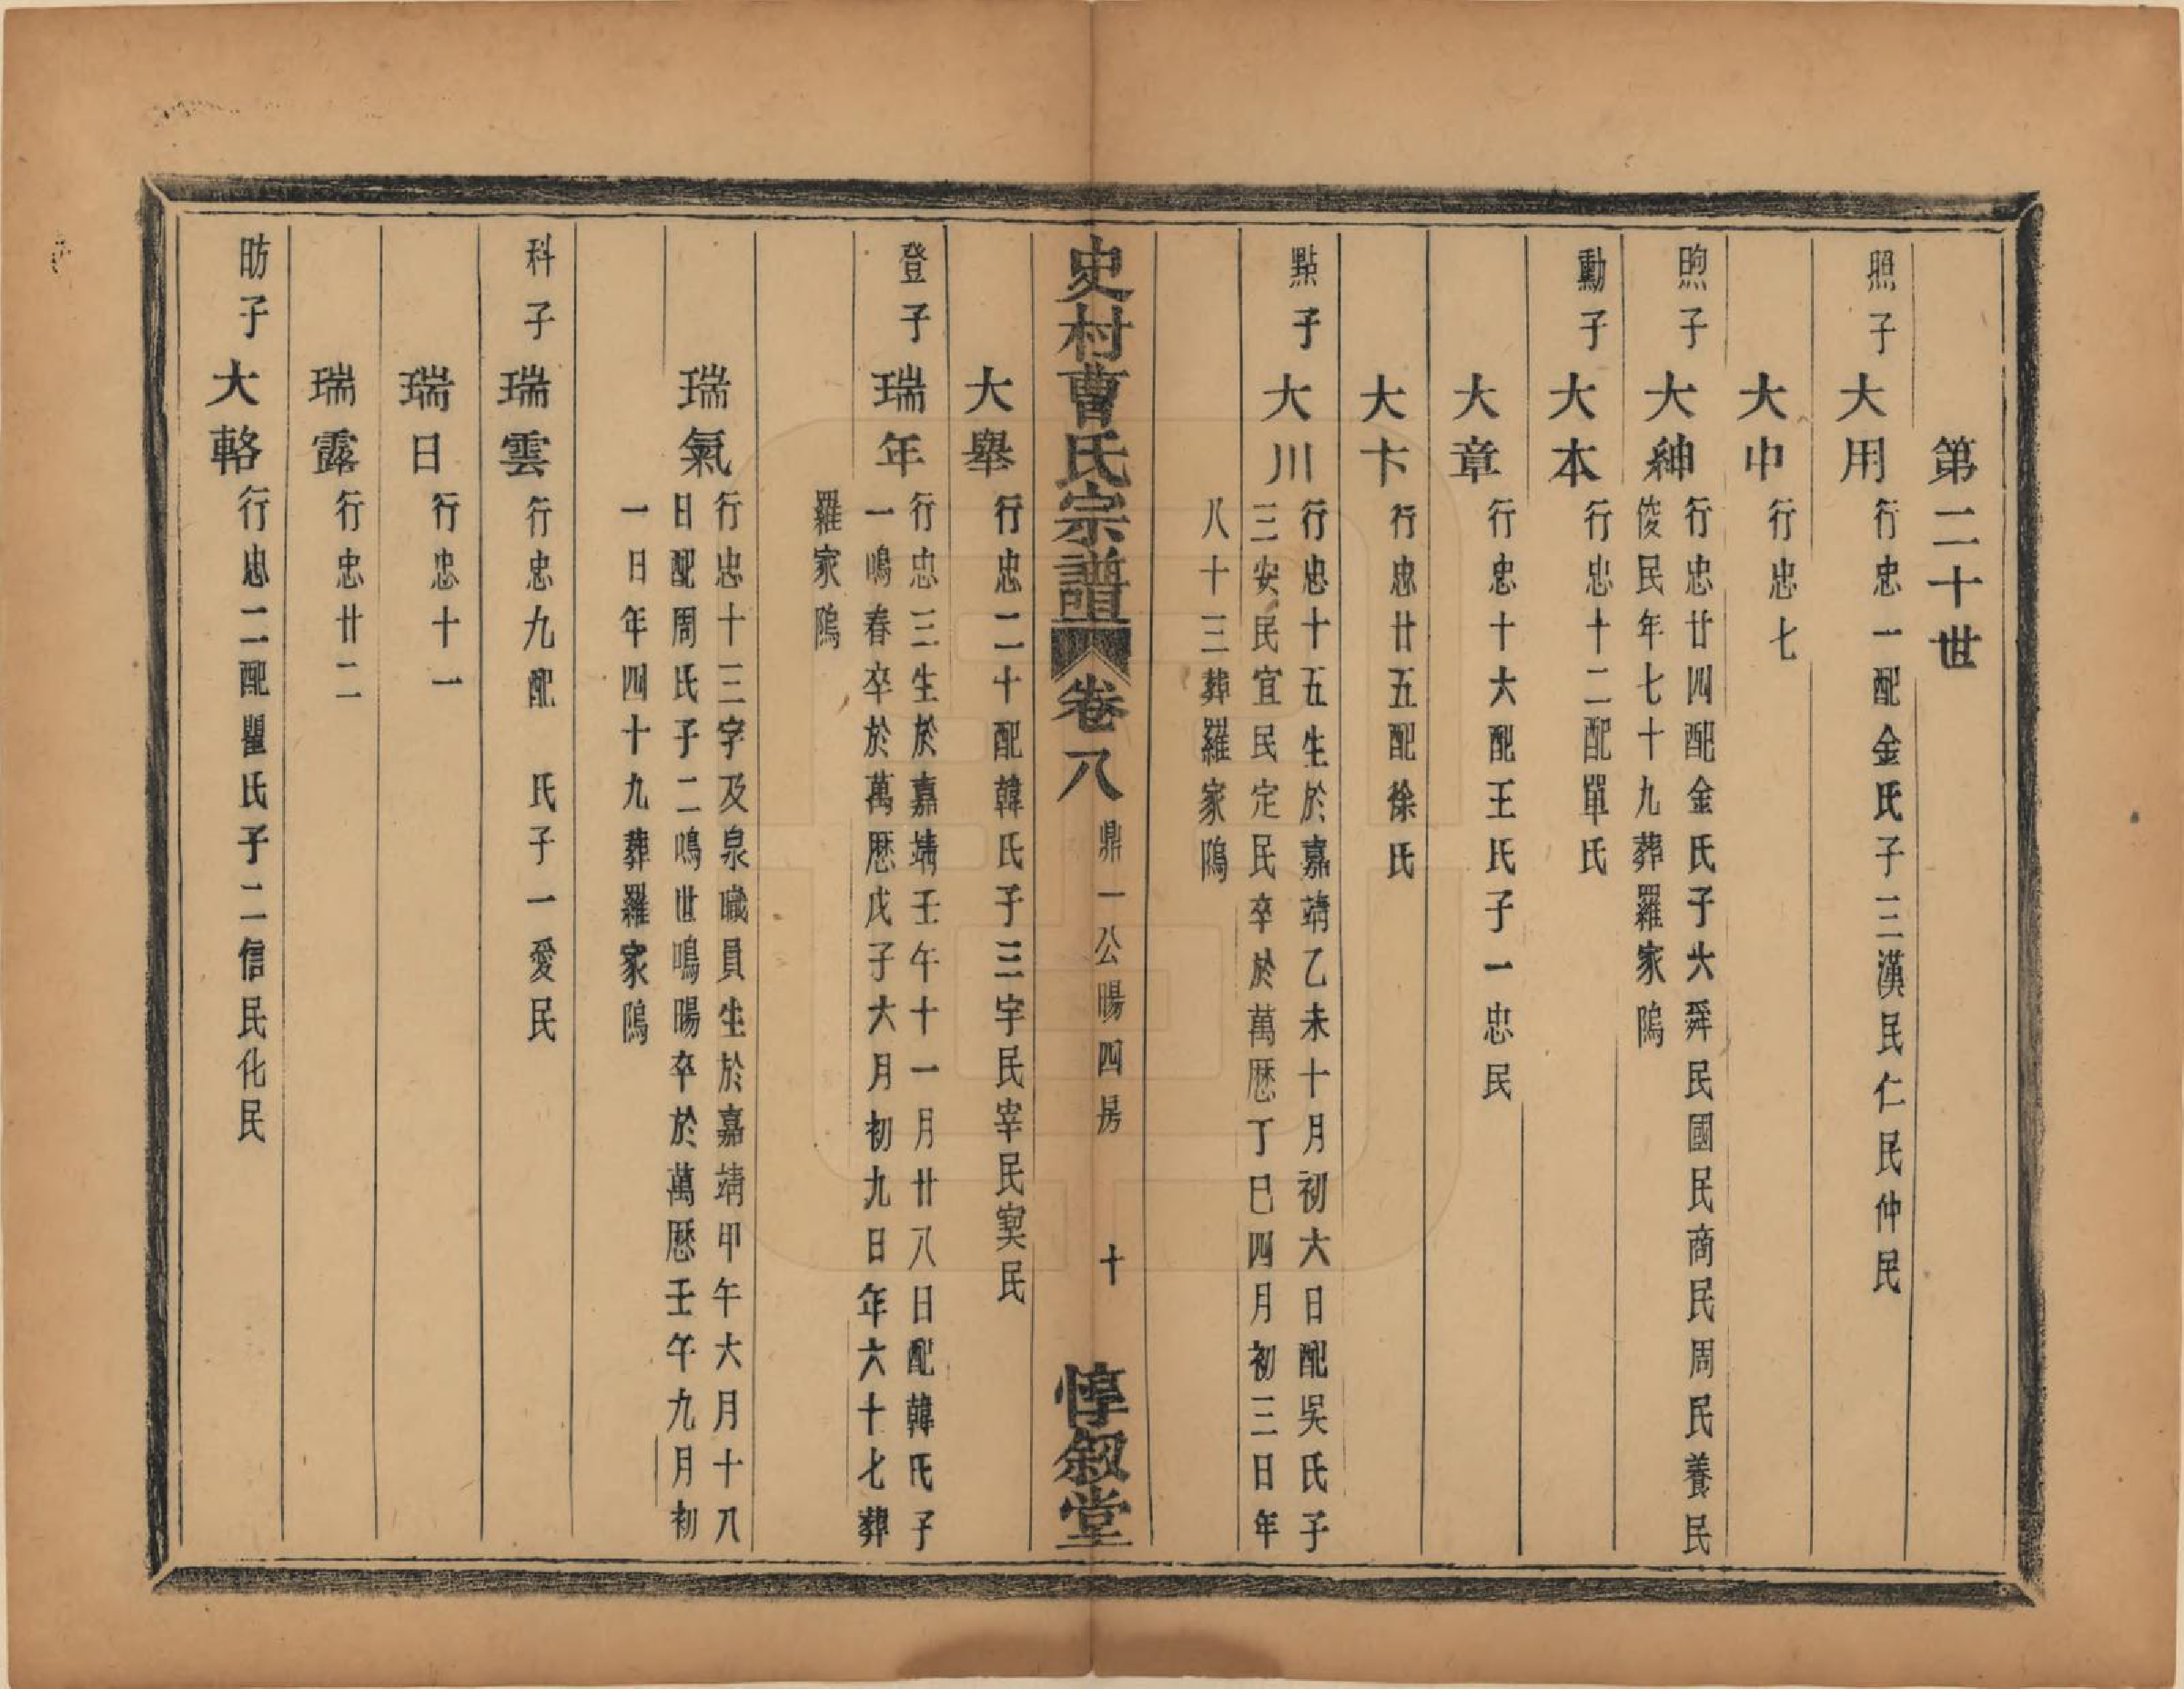 第二十世
照子 大用 行忠一配金氏子三漢民仁民仲民
大中 行忠七
煦子 大紳 行忠廿四配金氏子六舜民國民商民周民養民
俊民年七十九葬羅家隝
勳子 大本 行忠十二配單氏
大章 行忠十六配王氏子一忠民
大卞 行忠廿五配徐氏
點子 大川 行忠十五生於嘉靖乙未十月初六日配吳氏子
三安民宜民定民卒於萬厯丁巳四月初三日年
八十三葬羅家隝
史村曹氏宗譜 卷八 鼎一公暘四房 十 惇叙堂
大舉 行忠二十配韓氏子三宇民宰民寞民
登子 瑞年 行忠三生於嘉靖壬午十一月廿八日配韓氏子
一鳴春卒於萬厯戊子六月初九日年六十七葬
羅家隝
瑞氣 行忠十三字及泉職員生於嘉靖甲午六月十八
日配周氏子二鳴世鳴暘卒於萬厯壬午九月初
一日年四十九葬羅家隝
科子 瑞雲 行忠九配 氏子一愛民
瑞日 行忠十一
瑞露 行忠廿二
昉子 大輅 行忠二配瞿氏子二信民化民